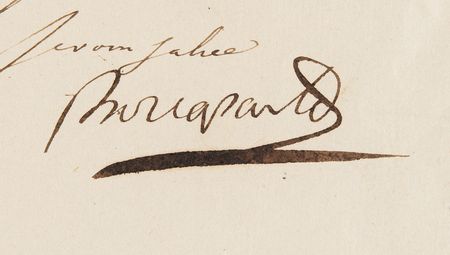 je vous salue
Bonaparte